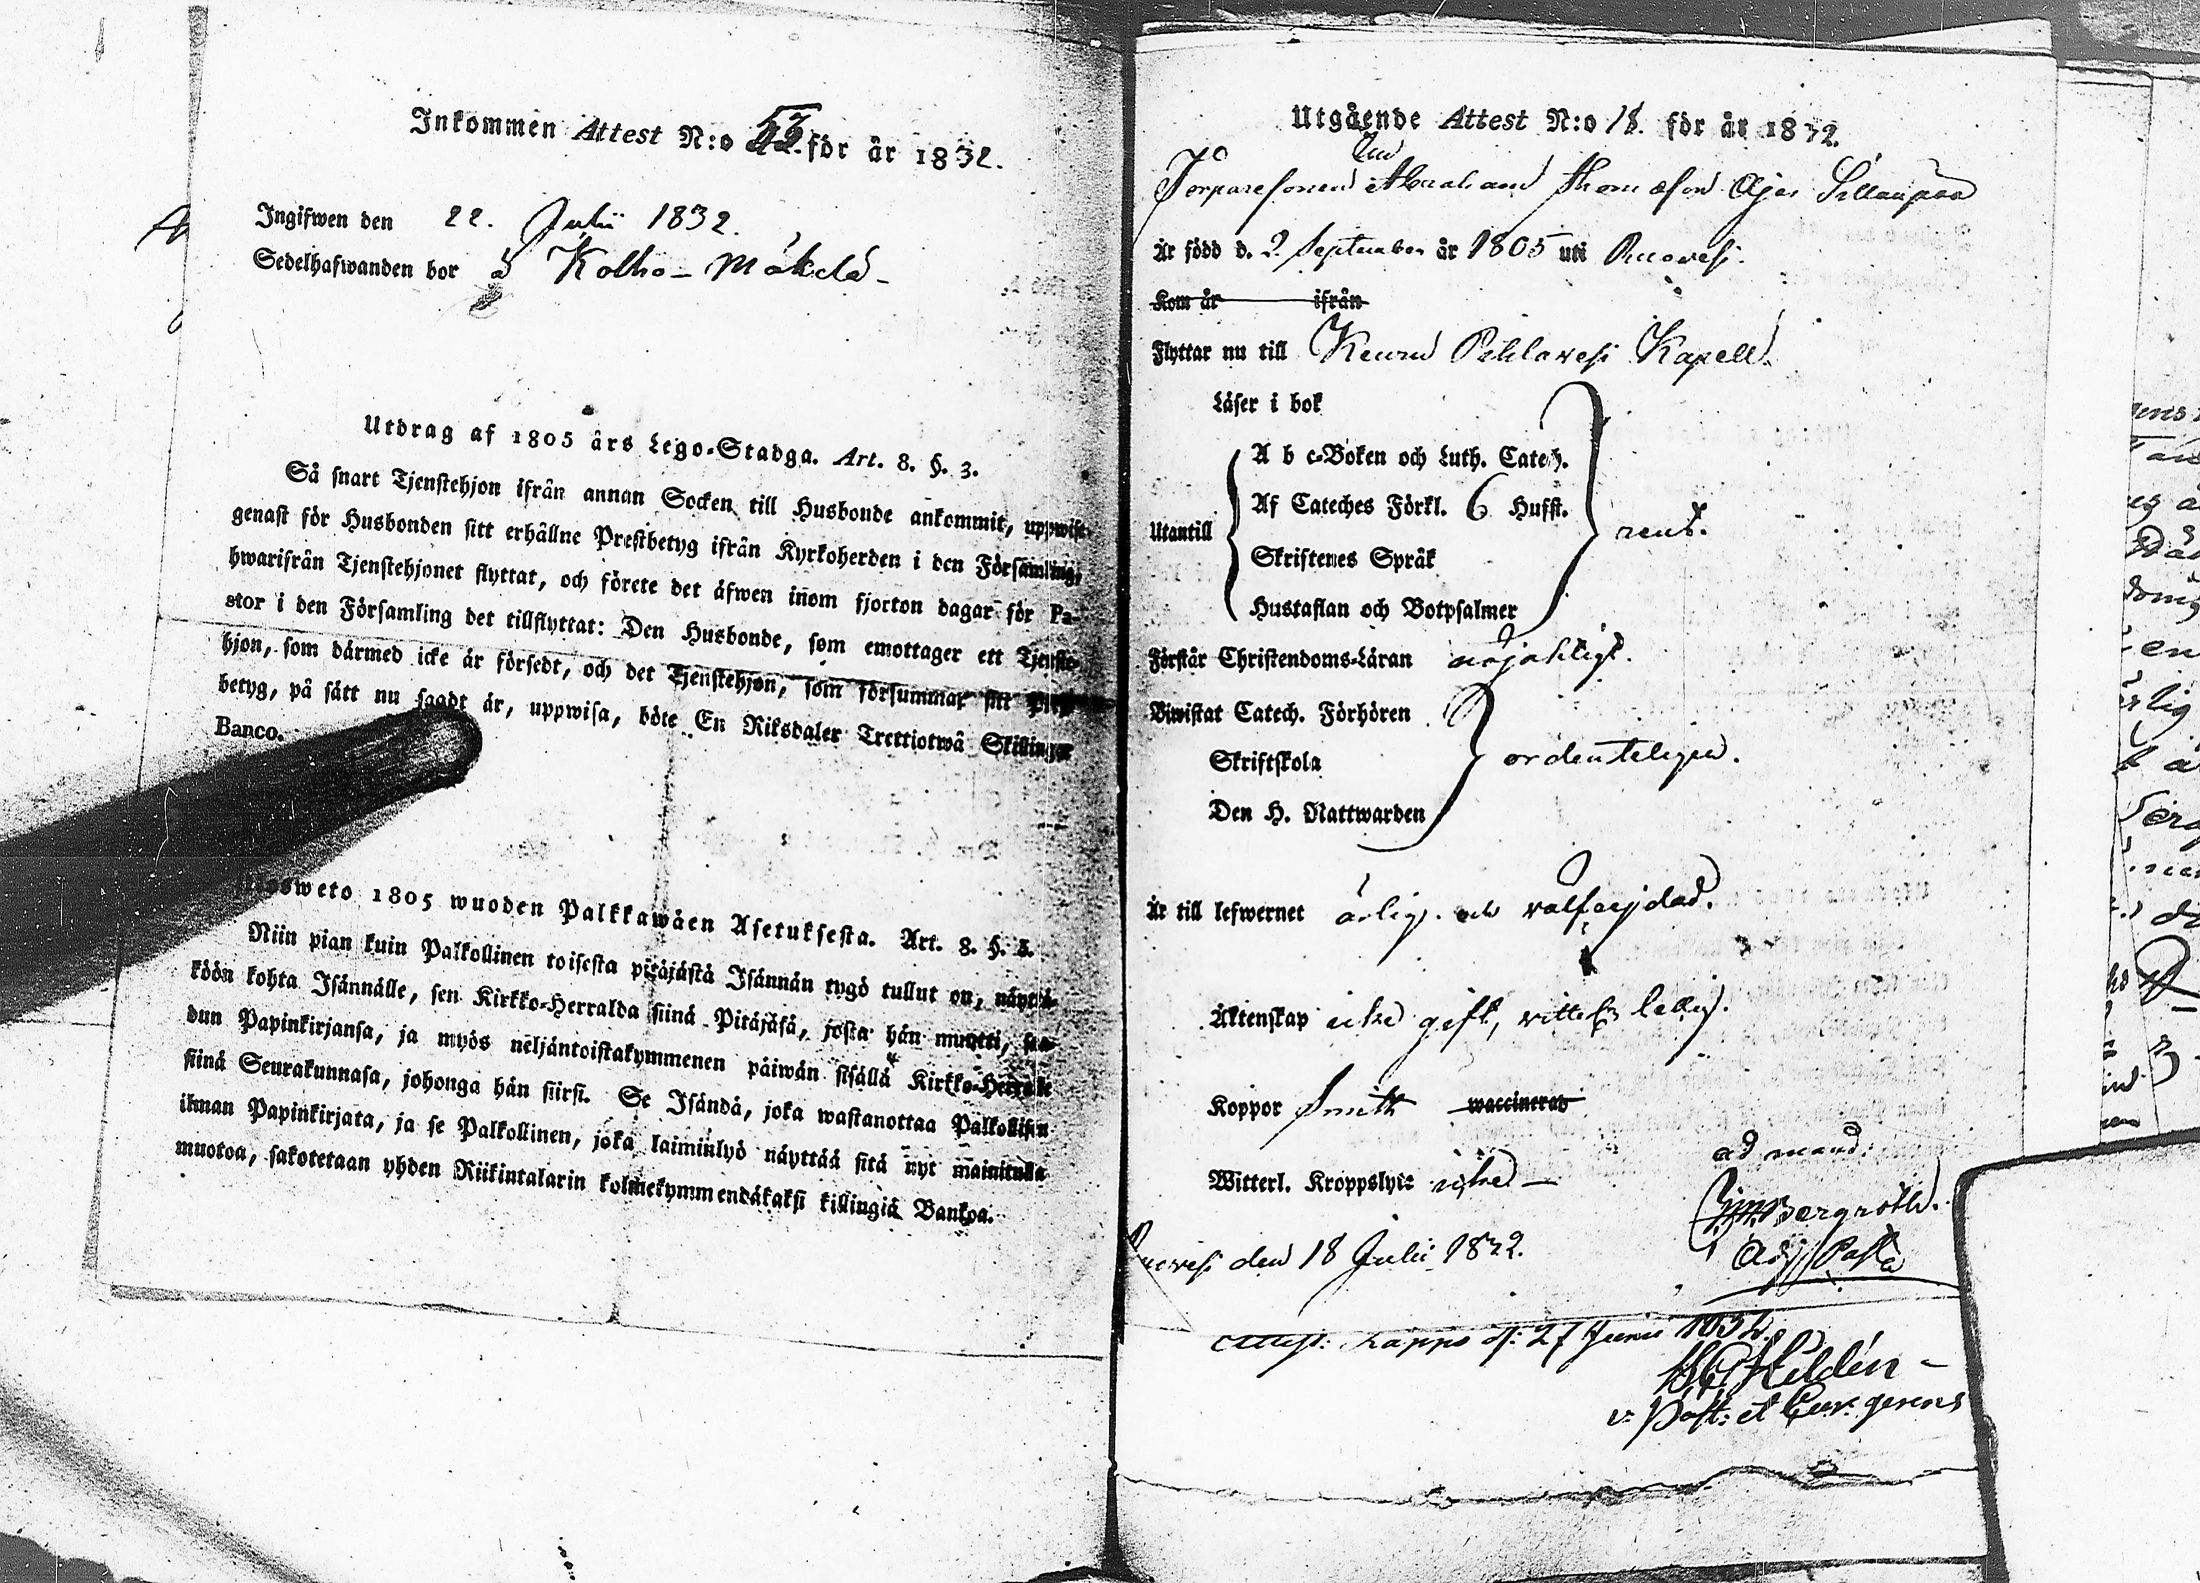 Inkommen Attest N:o 57. för år 1832.
Ingifwen den 22. Julii 1832.
Sedelhafwanden bor å Kolho-Mäkelä-
Utdrag af 1805 års Lego-Stadga. Art. 8. §. 3.
Så snart Tjenstehjon ifrån annan Socken till Husbonde ankommit, uppwise
genast för Husbonden sitt erhållne Prestbetyg ifrån Kyrkoherden i den Församling,
hwarifrån Tjenstehjonet flyttat, och förete det äfwen inom fjorton dagar för Pa-
stor i den Församling det tillflyttat: Den Husbonde, som emottager ett Tjenste-
hjon, som därmed icke är försedt, och det Tjenstehjon, som försummar sitt Prest-
betyg, på sätt nu sagdt är, uppwisa, böte En Riksdaler Trettiotwå Skillingar
Banco.
1805 wuoden Palkkawäen Asetuksesta. Art. 8. §. 3.
Niin pian kuin Palkollinen toisesta pitäjästä Isännän tygö tullut on, näyttä-
köön kohta Isännälle, sen Kirkko-Herralda siinä Pitäjäsä, josta hän muutti, saa-
dun Papinkirjansa, ja myös neljäntoistakymmenen päiwän sisällä Kirkko-Herralle
siinä Seurakunnasa, johonga hän siirsi. Se Isändä, joka wastanottaa Palkollisen
ilman Papinkirjata, ja se Palkollinen, joka laiminlyö näyttää sitä nyt mainitulla
muotoa, sakotetaan yhden Riikintalarin kolmekymmendäkaksi killingiä Bankoa.
Utgående Attest N:o 18. för år 1832.
Torparesonen Abraham Thomasson Äijä Sillanpää
Är född d. 2. September år 1805 uti Ruovesi.
Kom år ifrån
Flyttar nu till Keuru Pihlavesi Kapell.
Läser i bok
A b c-Boken och Luth. Catech.
Af Cateches Förkl. 6 Hufst.
Utantill rent.
Skriftenes Språk
Hustaflan och Botpsalmer
Förstår Christendoms-Läran nöjaktigt.
Biwistat Catech. Förhören
Skriftskola ordenteligen.
Den H. Nattwarden
Är till lefwernet ärlig och välfrejdad.
Äktenskap icke gift, vitterl. ledig.
Koppor Smitt waccinerad
Witterl. Kroppslyte icke –
ad mand:
Bergroth.
Adj. Past.
Ruovesi den 18 Julii 1832.
Attest: Lappo d: 27 Junii
Hildén –
v: Past: et Cur: gerens